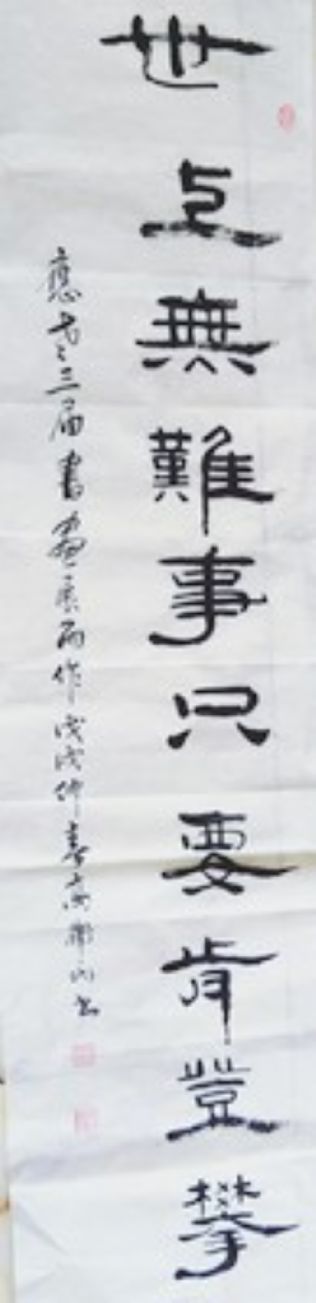 世上無難事只要肯登攀
應第三届書畫展而作戊戌仲春高衛山书